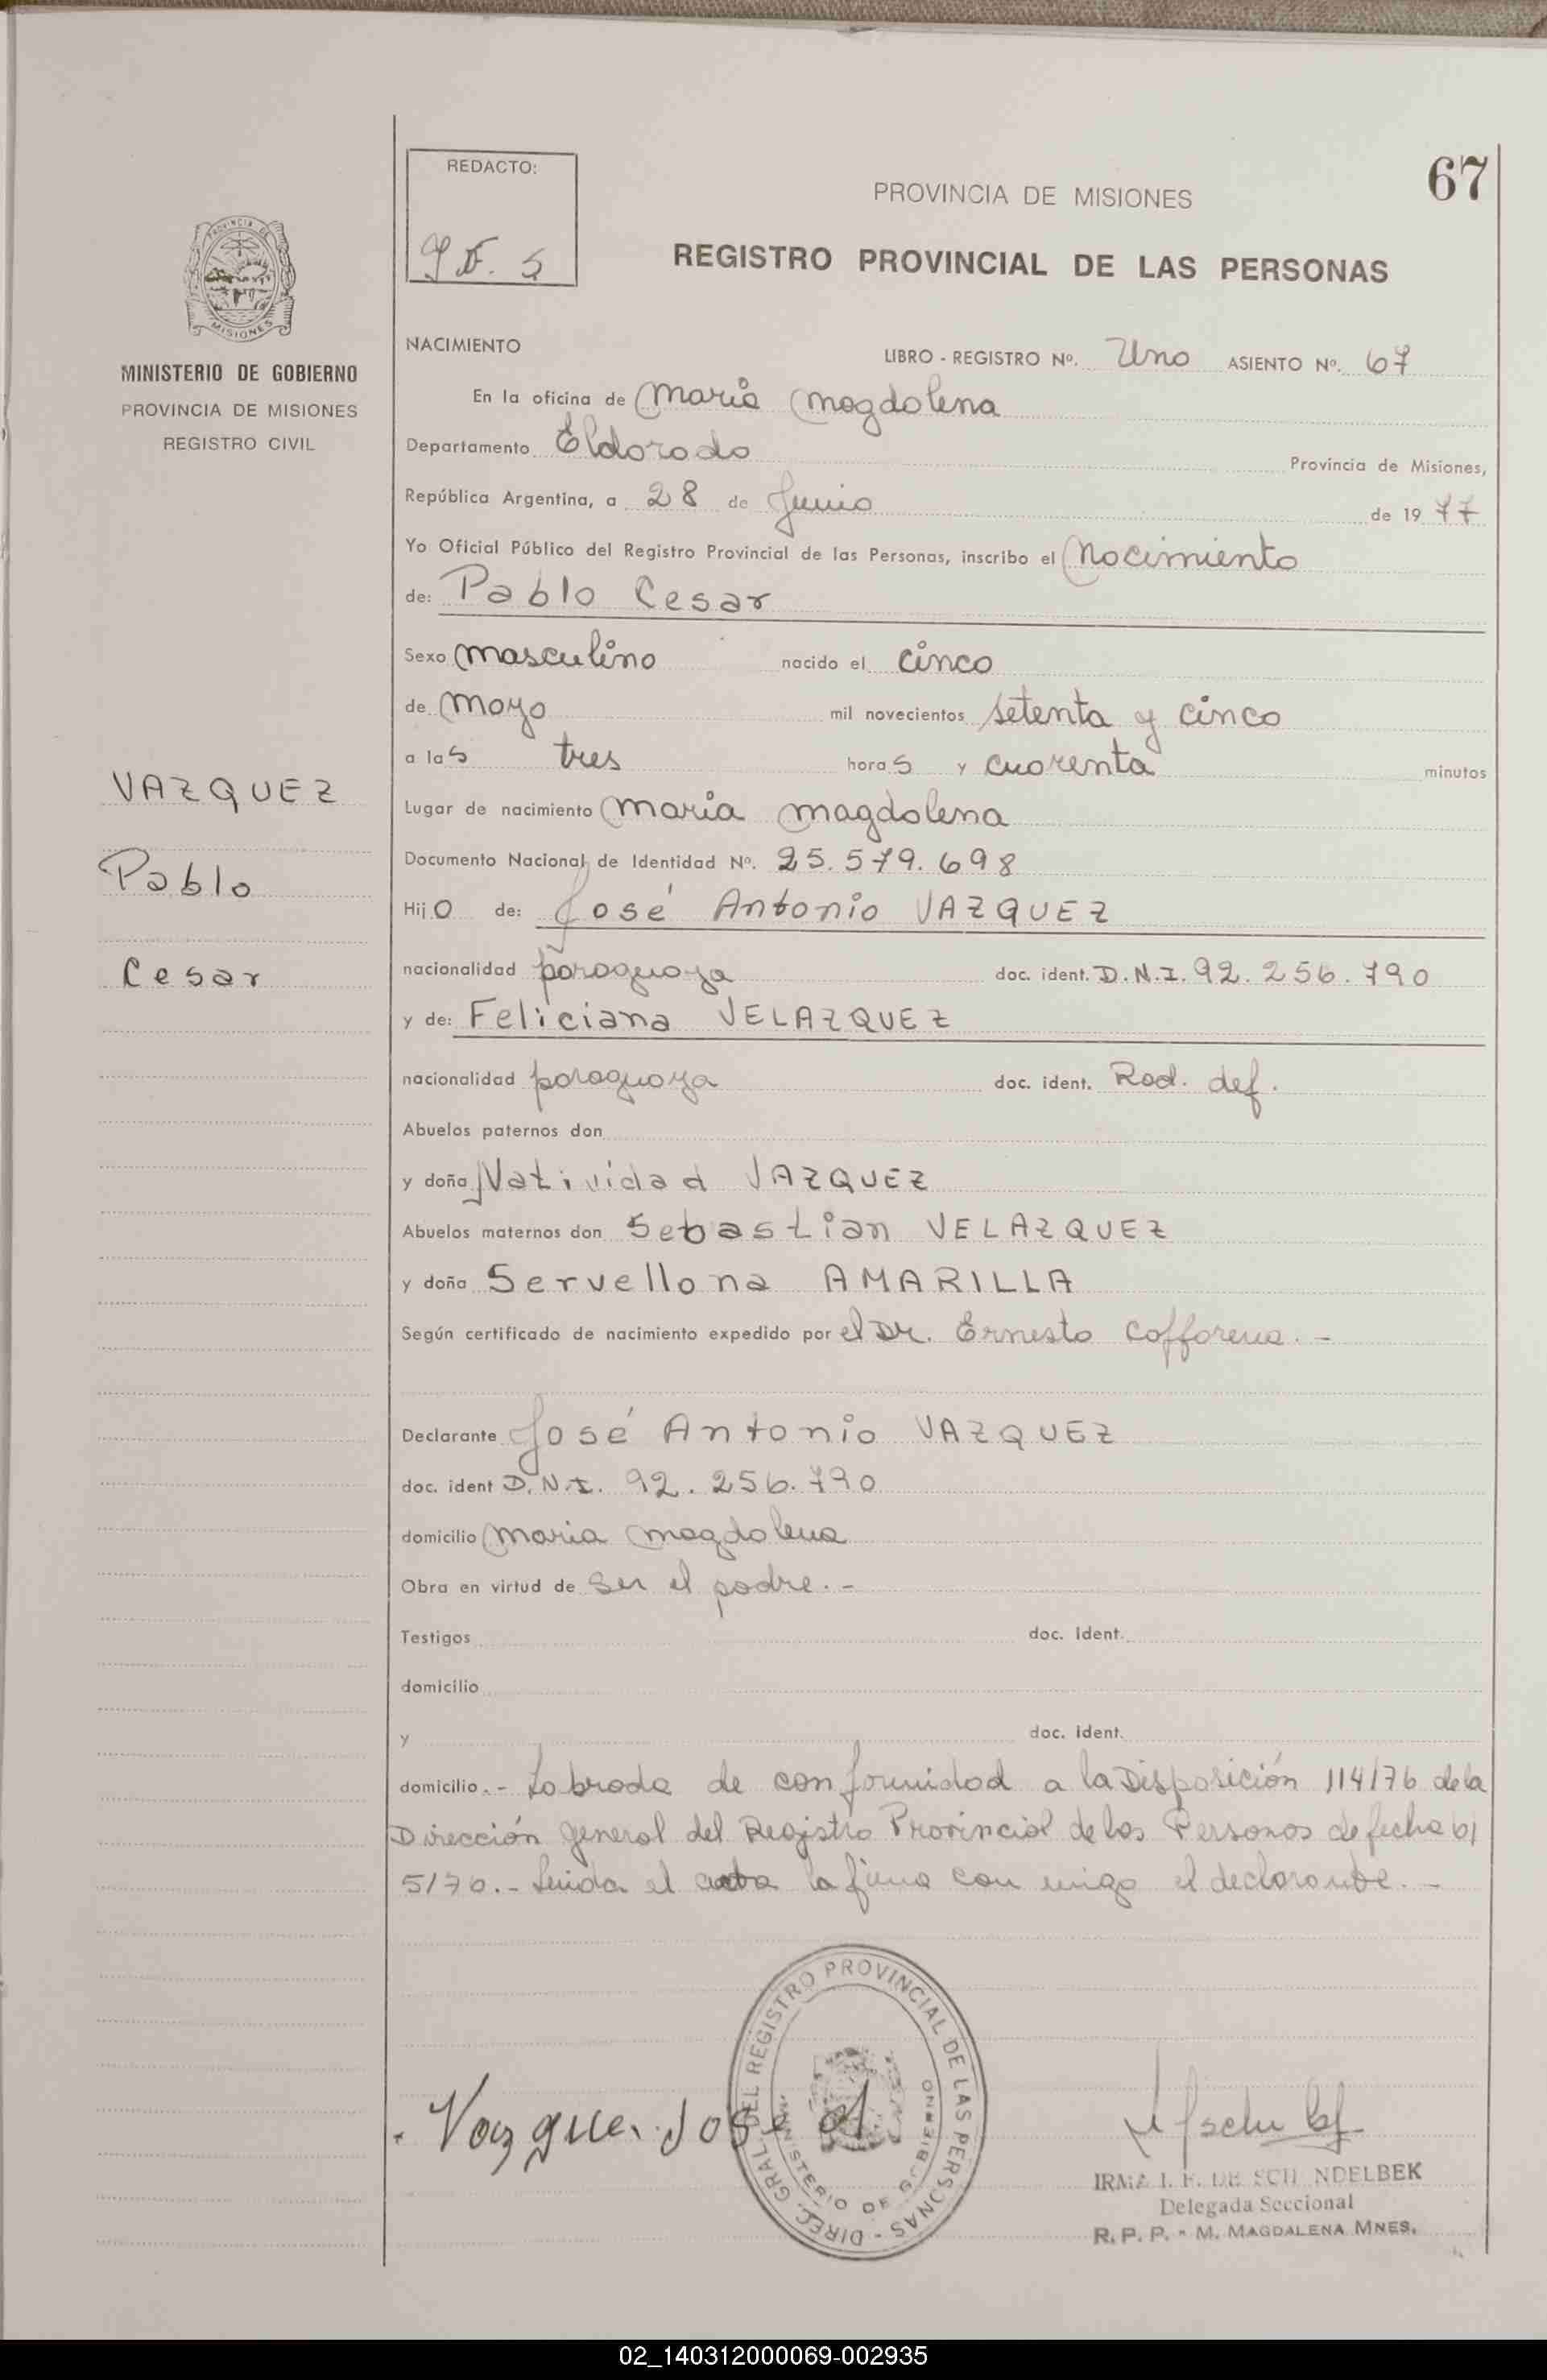 REDACTO:
67
PROVINCIA DE MISIONES
REGISTRO PROVINCIAL DE LAS PERSONAS
PROVINCIA DE
MISIONES
MINISTERIO DE GOBIERNO
PROVINCIA DE MISIONES
REGISTRO CIVIL
NACIMIENTO
LIBRO - REGISTRO Nº. Uno ASIENTO Nº. 67
En la oficina de Maria Magdalena
Departamento Eldorado Provincia de Misiones,
República Argentina, a 28 de Junio de 1977
Yo Oficial Público del Registro Provincial de las Personas, inscribo el Nacimiento
de: Pablo Cesar
Sexo masculino nacido el cinco
de Mayo mil novecientos setenta y cinco
a las tres horas y cuarenta minutos
VAZQUEZ
Pablo
Cesar
Lugar de nacimiento Maria Magdalena
Documento Nacional de Identidad Nº. 25.579.698
Hijo de: José Antonio VAZQUEZ
nacionalidad paraguaya doc. ident. D.N.I. 92.256.790
y de: Feliciana VELAZQUEZ
nacionalidad paraguaya doc. ident. Rad. def.
Abuelos paternos don
y doña Natividad VAZQUEZ
Abuelos maternos don Sebastian VELAZQUEZ
y doña Servellona AMARILLA
Según certificado de nacimiento expedido por el Dr. Ernesto
Declarante José Antonio VAZQUEZ
doc. ident D.N.I. 92.256.790
domicilio Maria Magdalena
Obra en virtud de ser el padre.-
Testigos doc. ident.
domicilio
y doc. ident.
domicilio.- Labrada de conformidad a la Disposición 114/76 de la
Dirección general del Registro Provincial de las Personas de fecha 6/
5/76.- Leida el acta la firma con migo el declarante.-
DIREC. GRAL. DEL REGISTRO PROVINCIAL DE LAS PERSONAS -
MINISTERIO DE GOBIERNO
Vazquez Jose A
IRMA I. F. DE SCH NDELBEK
Delegada Seccional
R. P. P. - M. MAGDALENA MNES.
02_140312000069-002935